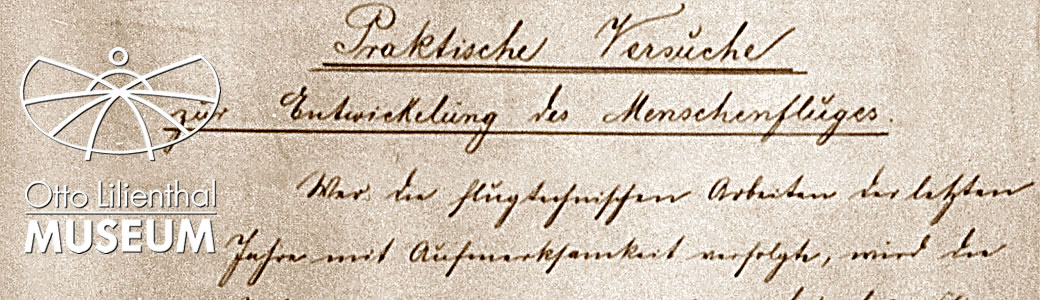 Praktische Versuche
zur Entwickelung des Menschenfluges.
Wer die flugtechnischen Arbeiten der letzten
Jahre mit Aufmerksamkeit verfolgte, wird die
Otto Lilienthal
MUSEUM